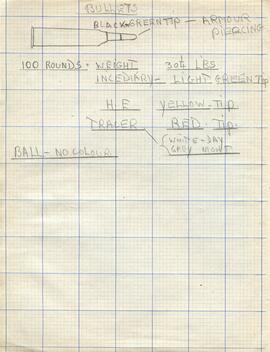 BULLETS
BLACK-GREEN TIP — ARMOUR
PIERCING
100 ROUNDS - WEIGHT 30¼ LBS
INCEDIARY - LIGHT GREEN TIP
H.E YELLOW - TIP
TRACER RED - TIP.
WHITE - DAY
GREY NIGHT
BALL - NO COLOUR